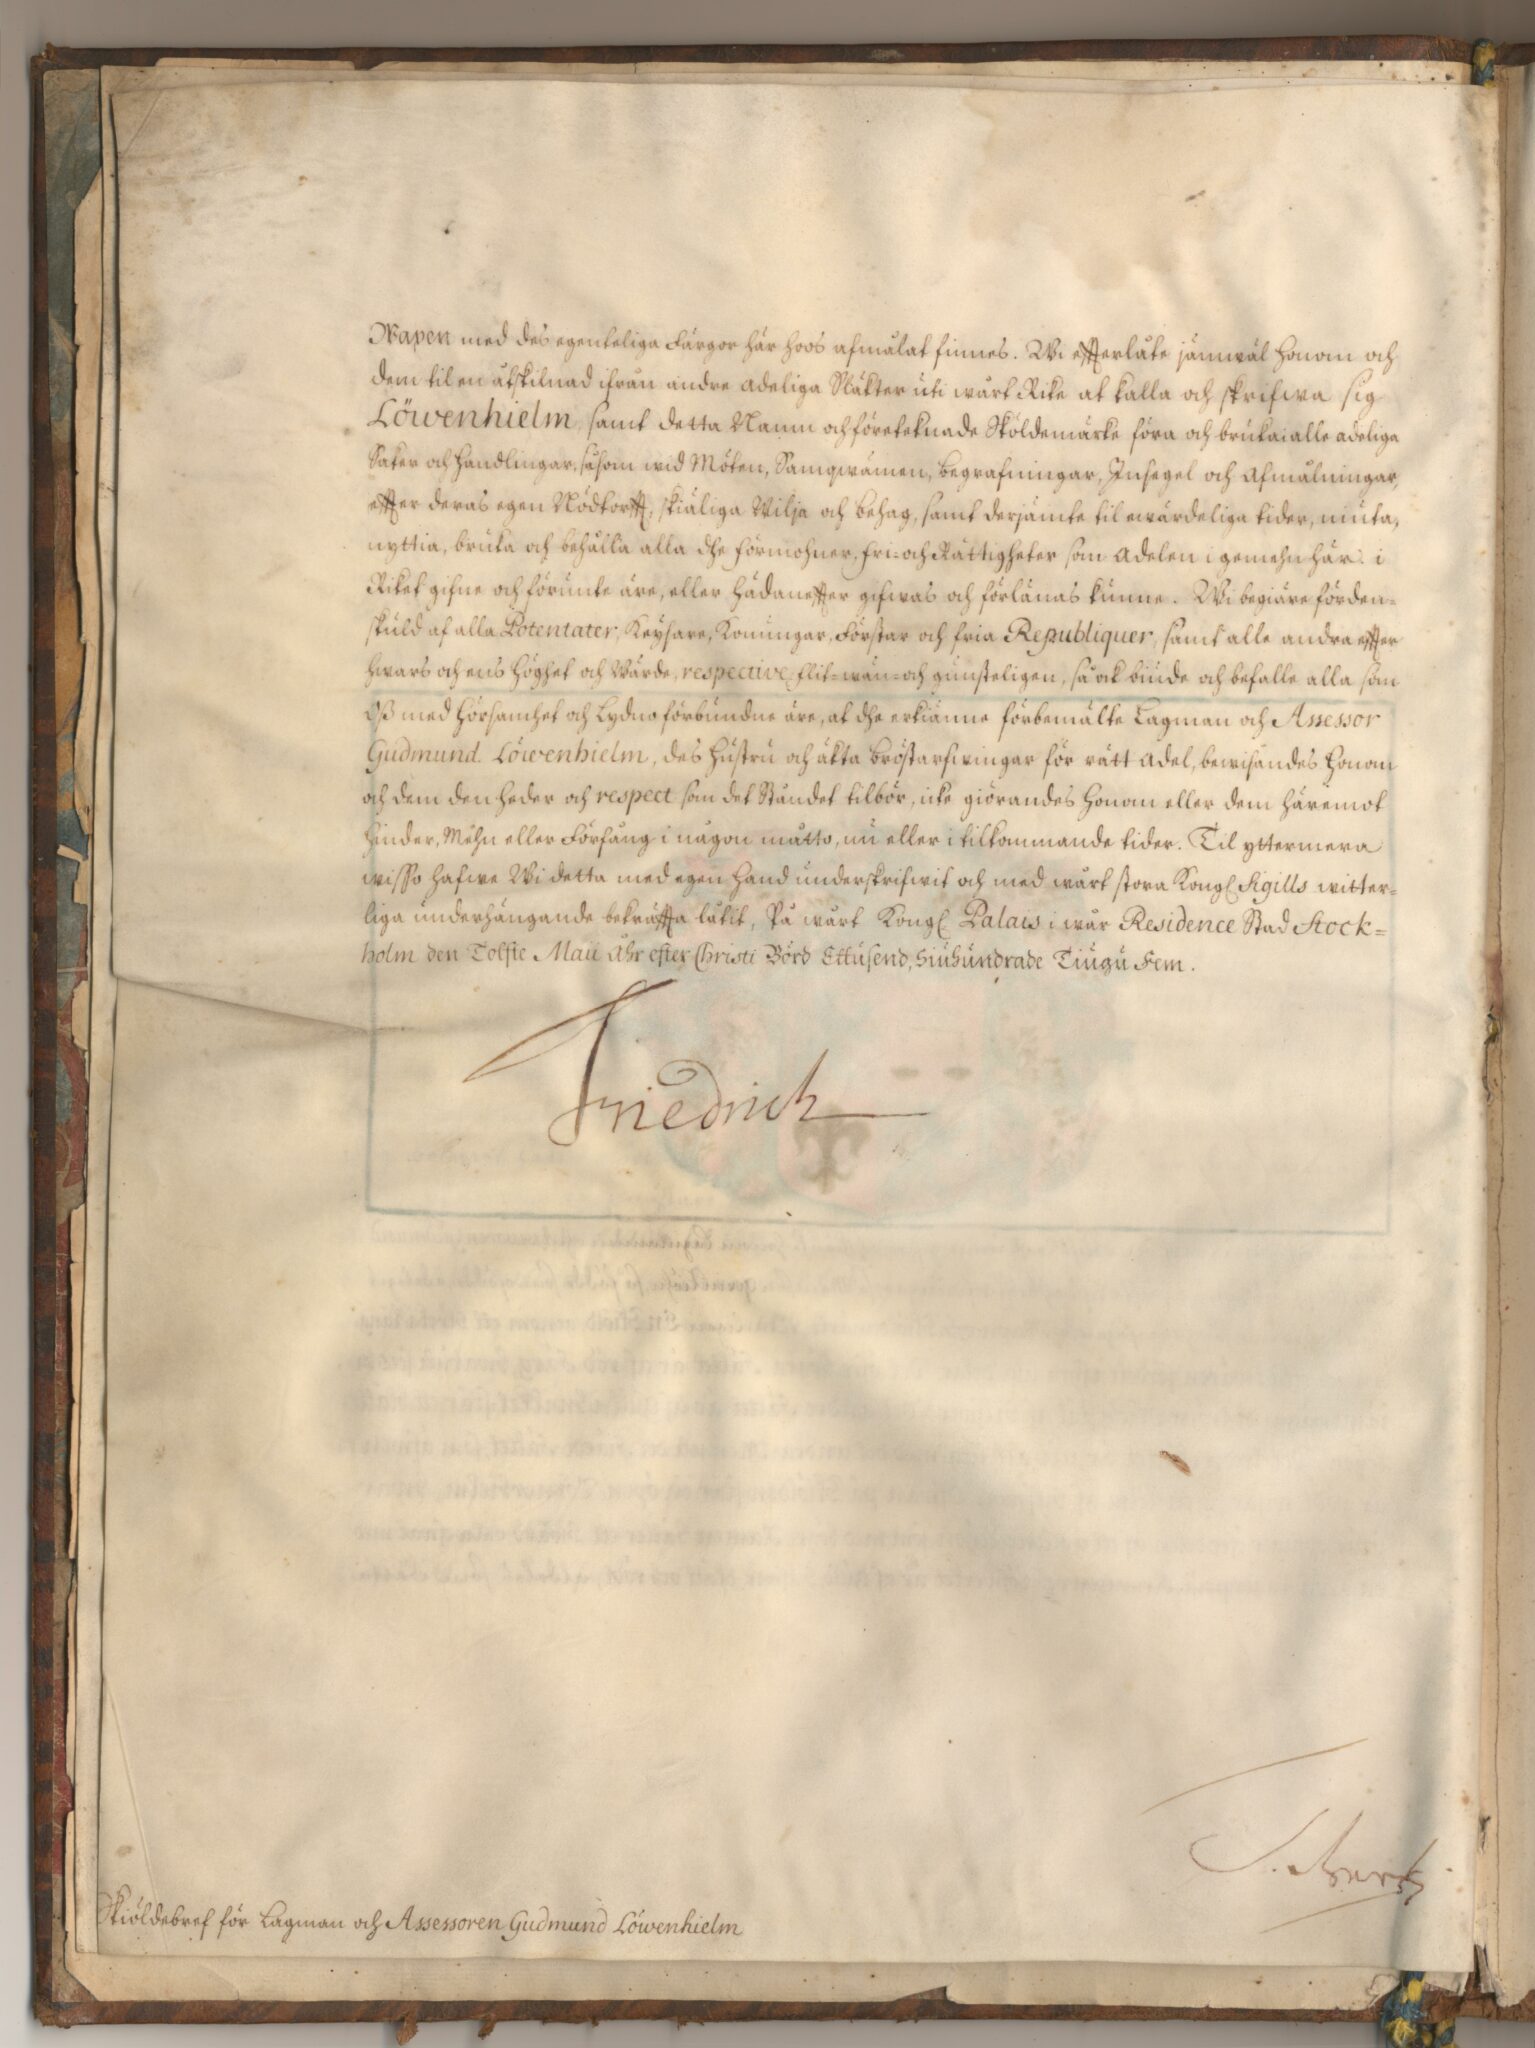 Wapen med des egenteliga Färgor här hoos afmålat finnes. Wi effterlåte jämwäl Honom och
dem til en åtskilnad ifrån andre Adeliga Släkter uti wårt Rike at kalla och skrifwa sig
Löwenhielm, samt detta Namn och företeknade Sköldemärke föra och bruka i alle adeliga
Saker och Handlingar, såsom wid Möten, Samqwämen, begrafningar, Insegel och Afmålningar,
effter deras egen Nödtorfft, skiäliga Wilja och behag, samt derjämte til ewärdeliga tider, niuta,
nyttia, bruka och behålla alla dhe förmohner, fri- och Rättigheter som Adelen i gemehn här i
Riket gifne och förunte äre, eller hädaneffter gifwas och förlänas kunne. Wi begiäre förden-
skuld af alla Potentater, Keysare, Konungar, Förstar och fria Republiquer, samt alle andra effter
hwars och ens Höghet och Wärde, respective flit- wän- och gunsteligen, så ock biude och befalle alla som
Oß med Hörsamhet och Lydno förbundne äre, at dhe erkiänne förbemälte Lagman och Assessor
Gudmund Löwenhielm, des Hustru och äkta bröstarfwingar för rätt Adel, bewisandes Honom
och dem den heder och respect som det Ståndet tilbör, icke giörandes Honom eller dem häremot
Hinder, Mehn eller Förfång i någon måtto, nu eller i tilkommande tider. Til yttermera
wisso hafwe Wi detta med egen Hand underskrifwit och med wårt stora Kongl Sigills witter-
liga underhängande bekräffta låtit, På wårt Kongl Palais i wår Residence Stad Stock-
holm den Tolfte Maii Åhr efter Christi Börd Ettusend, Siuhundrade Tiugu Fem.
Friedrich
Skiöldebref för Lagman och Assessoren Gudmund Löwenhielm